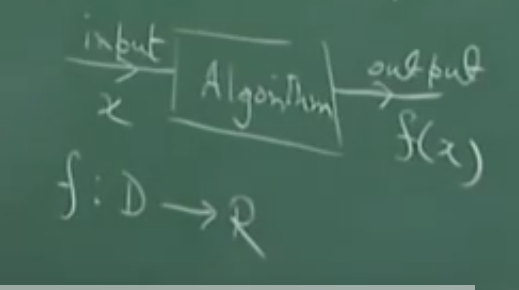 input Algorithm output
x f(x)
f : D → R